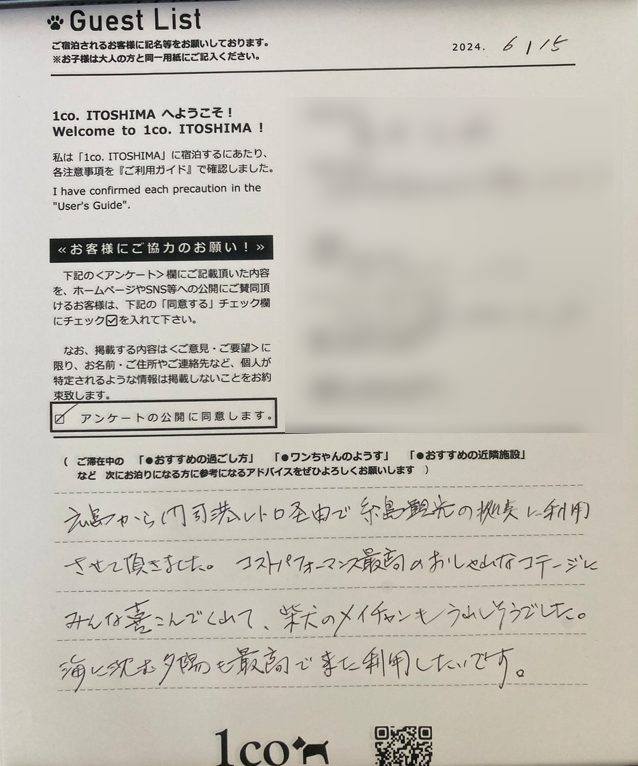 Guest List
ご宿泊されるお客様に記名等をお願いしております。
※お子様は大人の方と同一用紙にご記入ください。
2024. 6/15
1co. ITOSHIMA へようこそ！
Welcome to 1co. ITOSHIMA !
私は「1co. ITOSHIMA」に宿泊するにあたり、
各注意事項を『ご利用ガイド』で確認しました。
I have confirmed each precaution in the
"User's Guide".
≪お客様にご協力のお願い！≫
下記の＜アンケート＞欄にご記載頂いた内容
を、ホームページやSNS等への公開にご賛同頂
けるお客様は、下記の「同意する」チェック欄
にチェック☑を入れて下さい。
なお、掲載する内容は＜ご意見・ご要望＞に
限り、お名前・ご住所やご連絡先など、個人が
特定されるような情報は掲載しないことをお約
束致します。
☑ アンケートの公開に同意します。
（ ご滞在中の 「●おすすめの過ごし方」 「●ワンちゃんのようす」 「●おすすめの近隣施設」
など 次にお泊りになる方に参考になるアドバイスをぜひよろしくお願いします ）
広島から門司港レトロ経由で糸島観光の拠点に利用
させて頂きました。コストパフォーマンス最高のおしゃれなコテージに
みんな喜こんでくれて、柴犬のメイチャンもうれしそうでした。
海に沈む夕陽も最高でまた利用したいです。
1co